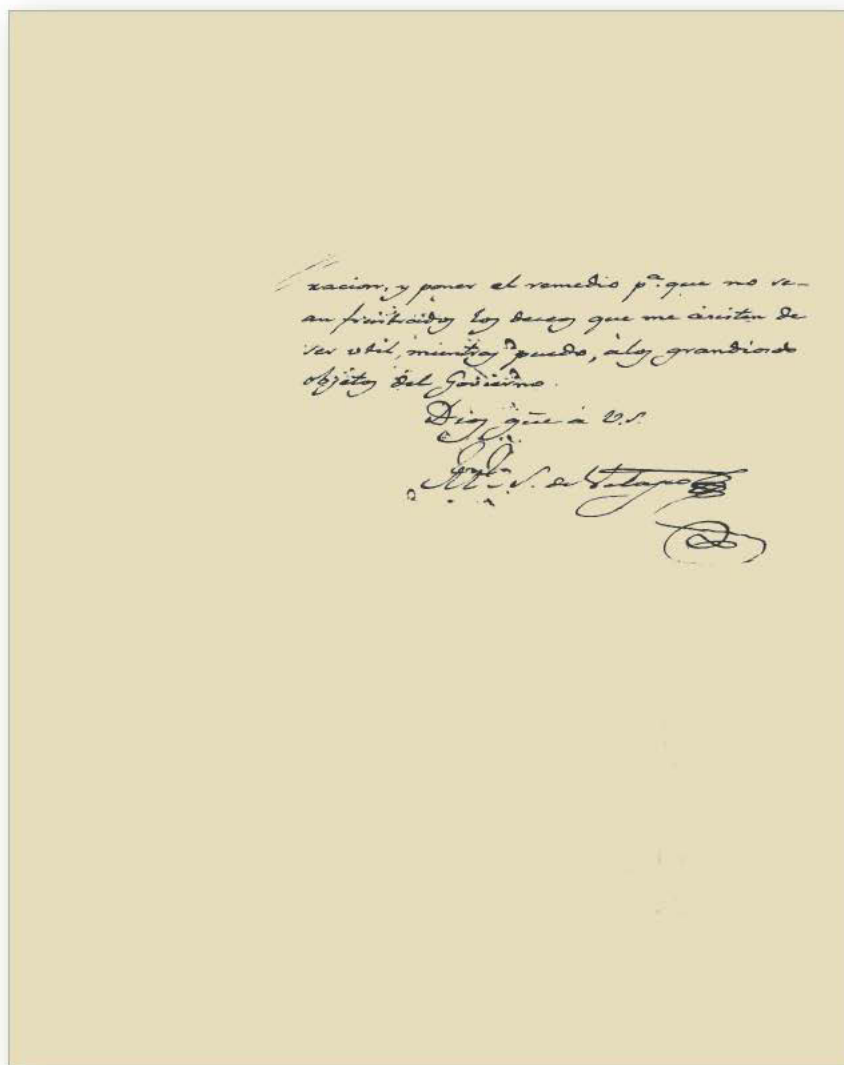 racion, y poner el remedio p.ª que no se-
an frustrados los deseos que me asisten de
ser util, mientras puedo, à los grandiosos
objetos del Govierno.
Dios gũe à V.S.
S. de